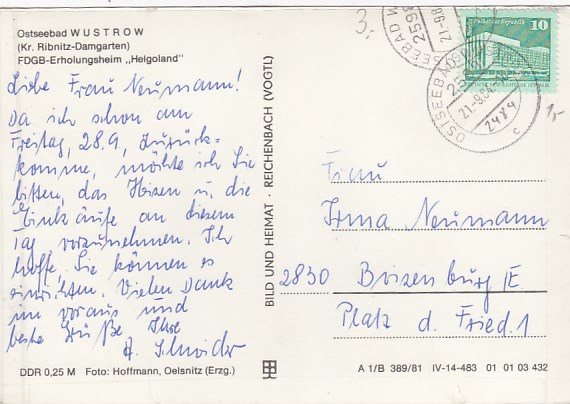 Ostseebad WUSTROW
(Kr. Ribnitz-Damgarten)
FDGB-Erholungsheim „Helgoland"
Liebe Frau Neumann!
Da ich schon am
Freitag, 28.9, zurück-
komme, möchte ich Sie
bitten, das Heizen u. die
Einkäufe an diesem
Tag vorzunehmen. Ich
hoffe, Sie können es
einrichten. Vielen Dank
im voraus und
beste Grüße Ihre
DDR 0,25 M Foto: Hoffmann, Oelsnitz (Erzg.)
BILD UND HEIMAT · REICHENBACH (VOGTL)
3,-
10
OSTSEEBAD
21.-9.84
2484
c
1,-
Frau
Irma Neumann
2830 Boizenburg/E
Platz d. Fried. 1
A 1/B 389/81 IV-14-483 01 01 03 432